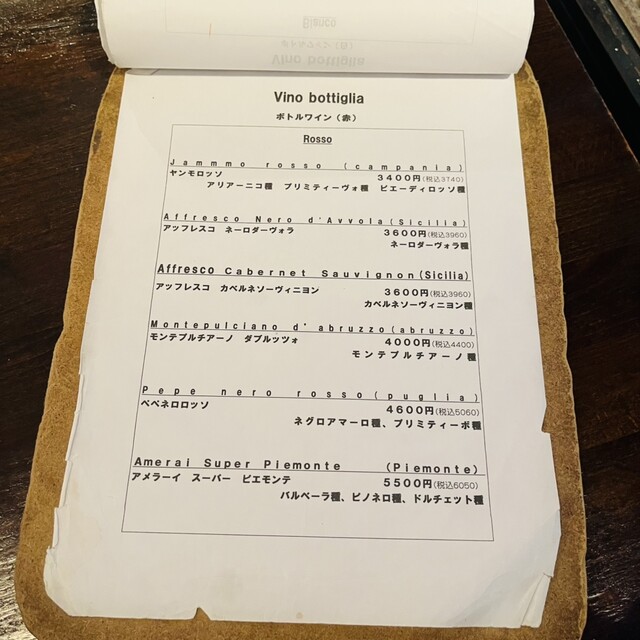 Bianco
ボトルワイン（白）
Vino bottiglia
Vino bottiglia
ボトルワイン（赤）
Rosso
Jammmo rosso (campania)
ヤンモロッソ 3400円(税込3740)
アリアーニコ種 プリミティーヴォ種 ピエーディロッソ種
Affresco Nero d'Avvola(Sicilia)
アッフレスコ ネーロダーヴォラ 3600円(税込3960)
ネーロダーヴォラ種
Affresco Cabernet Sauvignon(Sicilia)
アッフレスコ カベルネソーヴィニヨン 3600円(税込3960)
カベルネソーヴィニヨン種
Montepulciano d' abruzzo(abruzzo)
モンテプルチアーノ ダブルッツォ 4000円(税込4400)
モンテプルチアーノ種
Pepe nero rosso(puglia)
ペペネロロッソ 4600円(税込5060)
ネグロアマーロ種、プリミティーボ種
Amerai Super Piemonte (Piemonte)
アメラーイ スーパー ピエモンテ 5500円(税込6050)
バルベーラ種、ピノネロ種、ドルチェット種